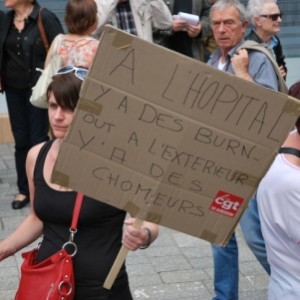 A L'HOPITAL
Y A DES BURN-
OUT A L'EXTERIEUR
Y'A DES
CHOMEURS
cgt